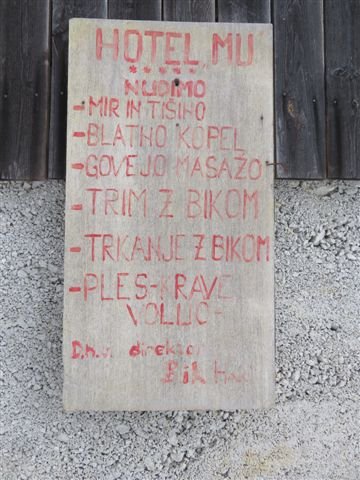 HOTEL MU
*****
NUDIMO
-MIR IN TIŠINO
-BLATNO KOPEL
-GOVEJO MASAŽO
-TRIM Z BIKOM
-TRKANJE Z BIKOM
-PLES-KRAVE
VOLIJO-
direktor
Bik